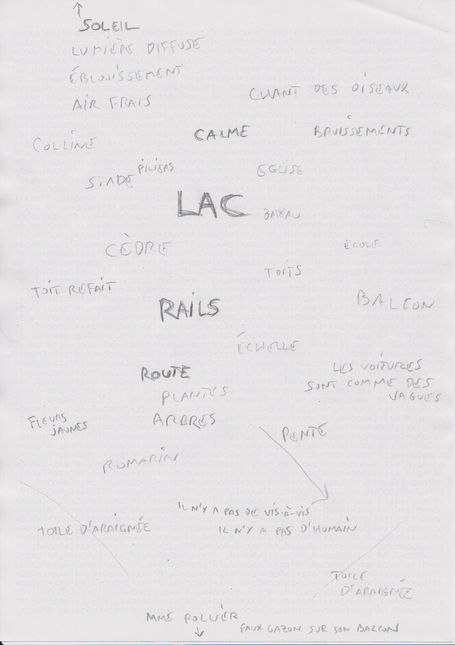 SOLEIL
LUMIÈRE DIFFUSE
ÉBLOUISSEMENT
AIR FRAIS
CHANT DES OISEAUX
COLLINE
CALME
BRUISSEMENTS
PILIERS
EGLISE
STADE
LAC
CÈDRE
ECOLE
TOITS
TOIT REFAIT
RAILS
BALCON
ÉCHELLE
ROUTE
LES VOITURES
SONT COMME DES
VAGUES
PLANTES
FLEURS
JAUNES
ARBRES
PENTE
ROMARIN
IL N'Y A PAS DE VIS-À-VIS
IL N'Y A PAS D'HUMAIN
TOILE D'ARAIGNÉE
TOILE
D'ARAIGNÉE
MME
FAUX GAZON SUR SON BALCON